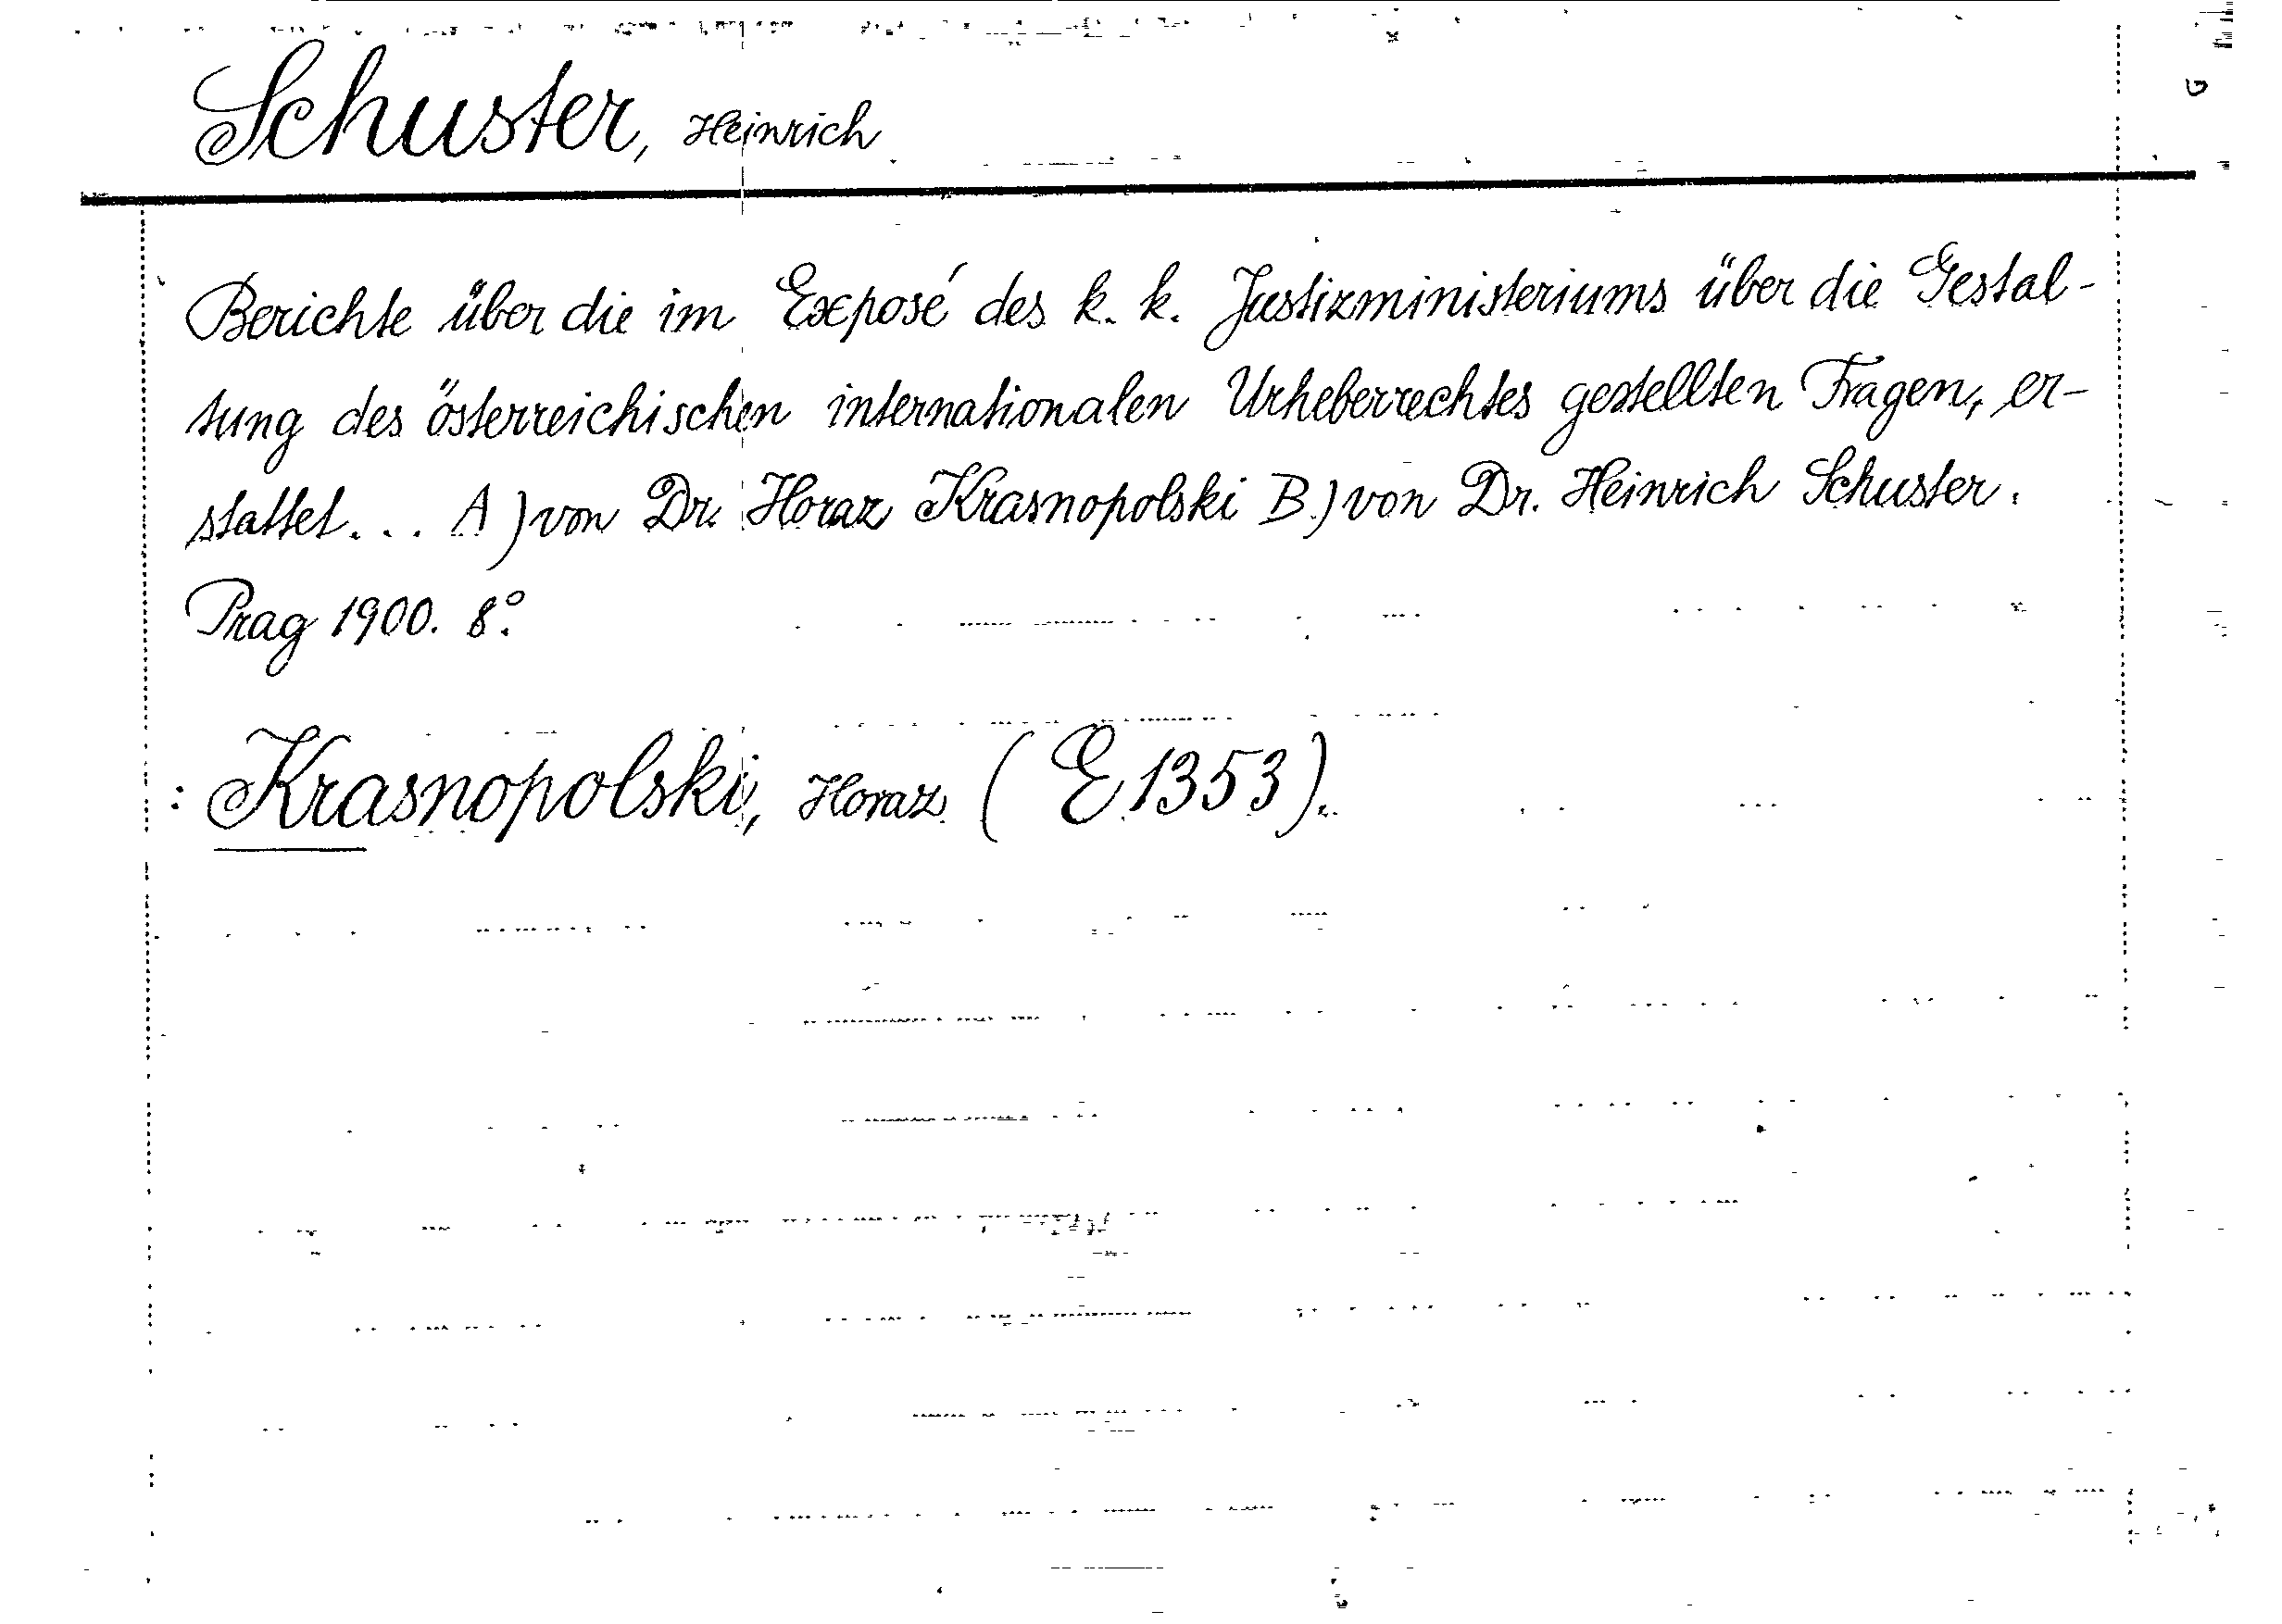 Schuster, Heinrich
Berichte über die im Exposé des k. k. Justizministeriums über die Gestal-
tung des österreichischen internationalen Urheberrechtes gestellten Fragen, er-
stattet... A) von Dr. Horaz Krasnopolski B) von Dr. Heinrich Schuster.
Prag 1900. 8°.
: Krasnopolski, Horaz (E 1353).